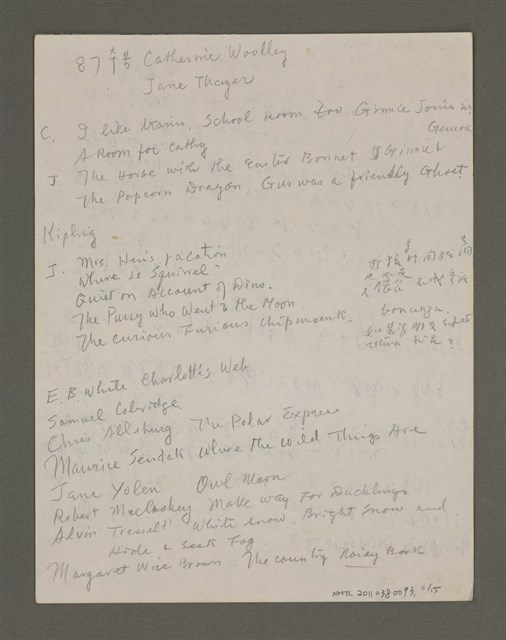 87 Catherine Woolley
Jane Thayer
C. I like trains. School Room Zoo Ginnie Joins in
Geneva
A Room for Cathy
J The Horse with the Easter Bonnet
The Popcorn Dragon Gus was a friendly Ghost
Kipling
J. Mrs. Hen's vacation
Where Is Squirrel
Quiet on Account of Dino.
The Pussy Who Went to the Moon
The curious Furious Chipmunk.
bonanza.
E.B. White Charlotte's Web
Samuel Coleridge
Chris Allsburg. The Polar Express
Maurice Sendak Where The Wild Things Are
Jane Yolen Owl Moon
Robert Maclaskey Make way For Ducklings
Alvin Tresselt White snow, Bright Snow and
Hide & Seek Fog.
Margaret Wise Brown The country Noisy Book
NMTL 20110380093, 6/15